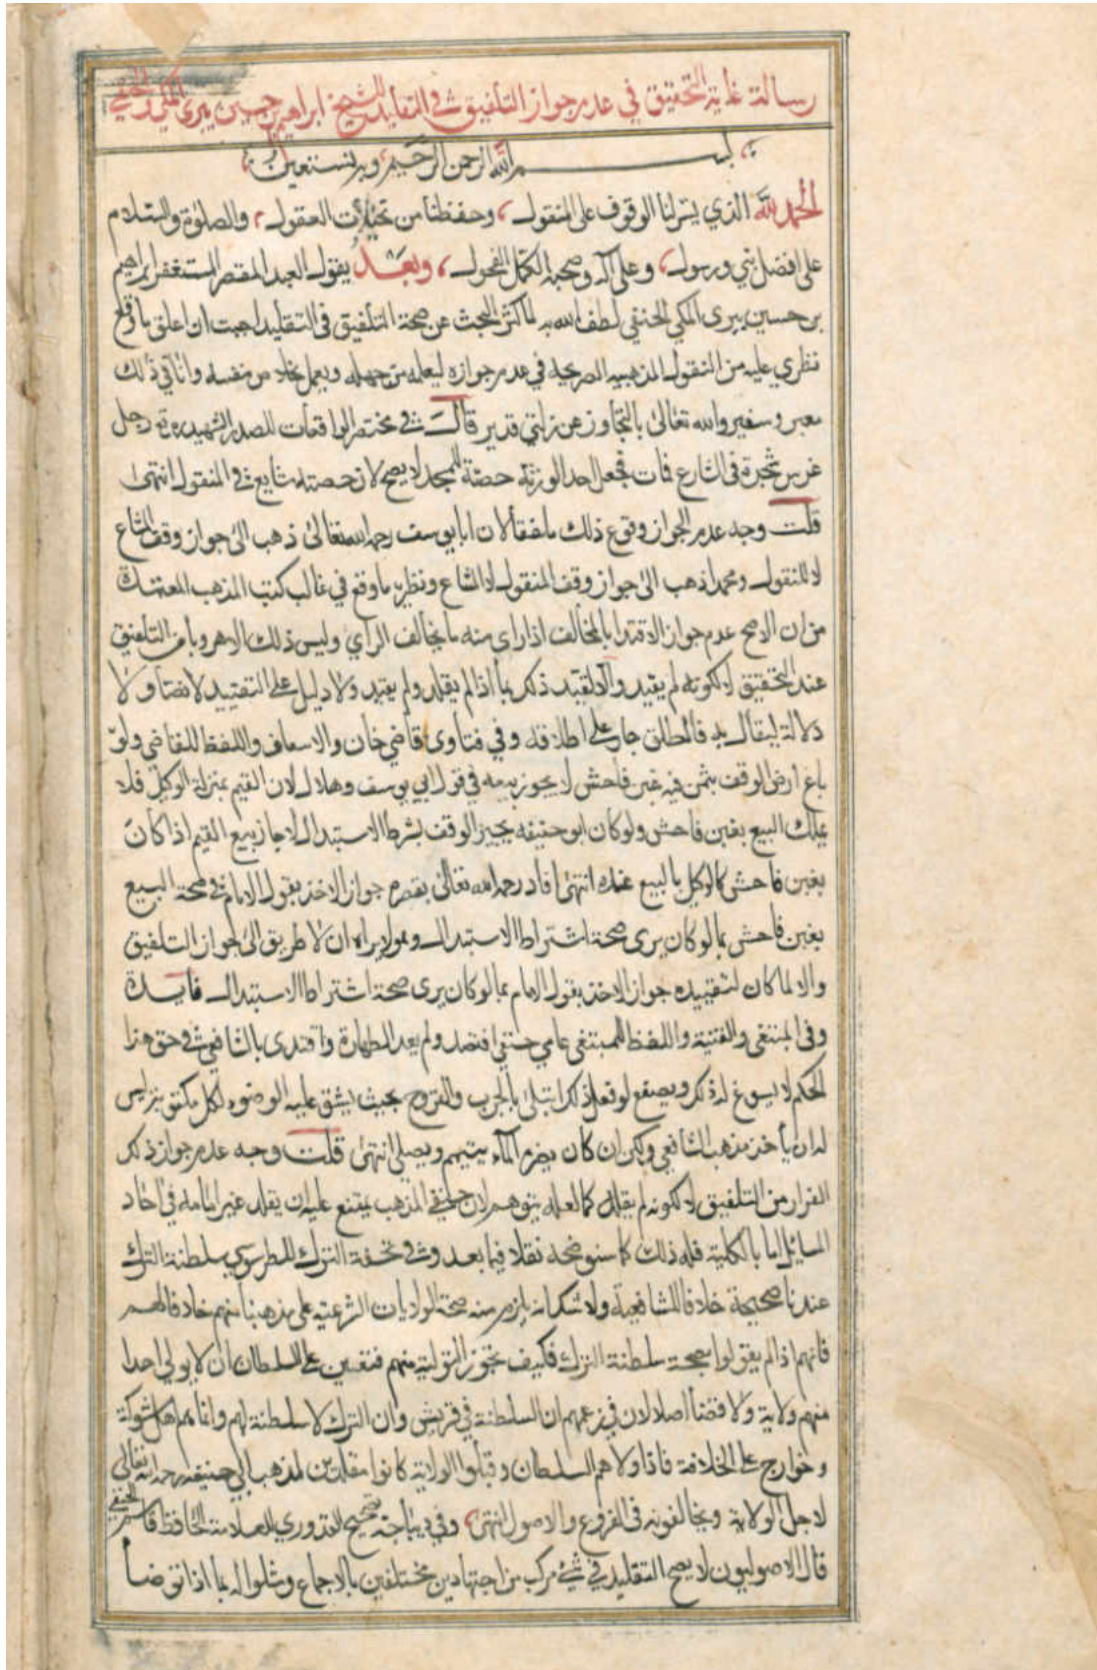 رسالة غاية التحقيق في عدم جواز التلفيق في التقليد للشيخ ابراهيم بن حسين بيرى المكي الحنفي
بسم الله الرحمن الرحيم وبه نستعين
الحمد لله الذي يسر لنا الوقوف على المنقول، وحفظنا من تخيلات العقول، والصلوة والسلام
على افضل نبي ورسول، وعلى آله وصحبه الكمل الفحول، وبعد يقول العبد المقصر المستغفر ابراهيم
بن حسين بيرى المكي الحنفي لطف الله به لما كثر البحث عن صحة التلفيق في التقليد احببت ان اعلق ما وقع
نظري عليه من النقول المذهبيه الصريحة في عدم جوازه ليعلمه من جهله ويعمل بخلاص نفسه وانا في ذلك
معبر وسفير والله تعالى بالتجاوز عن زلتي قدير قال في مختصر الواقعات للصدر الشهيد رجل
غرس شجرة في الشارع فمات فجعل احد الورثة حصته للمسجد لا يصح لان حصته شايع في المنقول انتهى
قلت وجه عدم الجواز وقوع ذلك ملفقا لان ابا يوسف رحمه الله تعالى ذهب الى جواز وقف المشاع
لا المنقول ومحمدا ذهب الى جواز وقف المنقول لا المشاع ونظيره ما وقع في غالب كتب المذهب المعتمدة
من ان الاصح عدم جواز الاقتدا بالمخالف اذا راى منه ما يخالف الراي وليس ذلك الا هروبا من التلفيق
عند التحقيق لا لكونه لم يقيد والا لقيد ذلك بما اذا لم يقلد ولم يقيد ولا دليل على التقييد لا نصا ولا
دلالة ليقال به فالمطلق جار على اطلاقه وفي فتاوى قاضي خان والاسعاف واللفظ للقاضي ولو
باع ارض الوقف بثمن فيه غبن فاحش لا يجوز بيعه في قول ابي يوسف وهلال لان القيم بمنزلة الوكيل فلا
يملك البيع بغبن فاحش ولو كان ابو حنيفه يجيز الوقف بشرط الاستبدال لاجاز بيع القيم اذا كان
بغبن فاحش كالوكيل بالبيع عنده انتهى افاد رحمه الله تعالى بقصره جواز الاخذ بقول الامام في صحة البيع
بغبن فاحش بما لو كان يرى صحة اشتراط الاستبدال وهو لا يراه ان لا طريق الى جواز التلفيق
والا لما كان لتقييده جواز الاخذ بقول الامام بما لو كان يرى صحة اشتراط الاستبدال فايدة
وفي المبتغى والقنية واللفظ للمبتغى عامي حنفي افتصد ولم يعد الطهارة واقتدى بالشافعي في حق هذا
الحكم لا يسوغ له ذلك ويصفع لو فعل ذلك ابتلى بالجرب والقروح بحيث يشق عليه الوضوء لكل مكتوبة ليس
له ان ياخذ مذهب الشافعي ولكن ان كان يضره الماء يتيمم ويصلي انتهى قلت وجه عدم جواز ذلك
الفرار من التلفيق لا لكونه لم يقلد كما لعله يتوهم لان حنفي المذهب يمتنع عليه ان يقلد غير امامه في احاد
المسايل اما بالكلية فله ذلك كما سنوضحه نقلا فيما بعد وفي تحفة الترك للطرسوسي سلطنة الترك
عندنا صحيحة خلافا للشافعية ولا شك انه يلزم منه صحة الولايات الشرعية على مذهبنا منهم خلافا لهم
فانهم اذا لم يقولوا بصحة سلطنة الترك فكيف تجوز التولية منهم فتعين على السلطان ان لا يولي احدا
منهم ولاية ولا قضأ اصلا لان في زعمهم ان السلطنة في قريش وان الترك لا سلطنة لهم وانما هم اهل شوكة
وخوارج على الخلافة فاذا ولاهم السلطان وقبلوا الولاية كانوا مقلدين لمذهب ابي حنيفه رحمه الله تعالى
لاجل الولاية ويخالفونه في الفروع والاصول انتهى، وفي ديباجة تصحيح القدوري للعلامة الحافظ قاسم الحنفي
قال الاصوليون لا يصح التقليد في شئ مركب من اجتهادين مختلفين بالاجماع ومثلوا له بما اذا توضأ